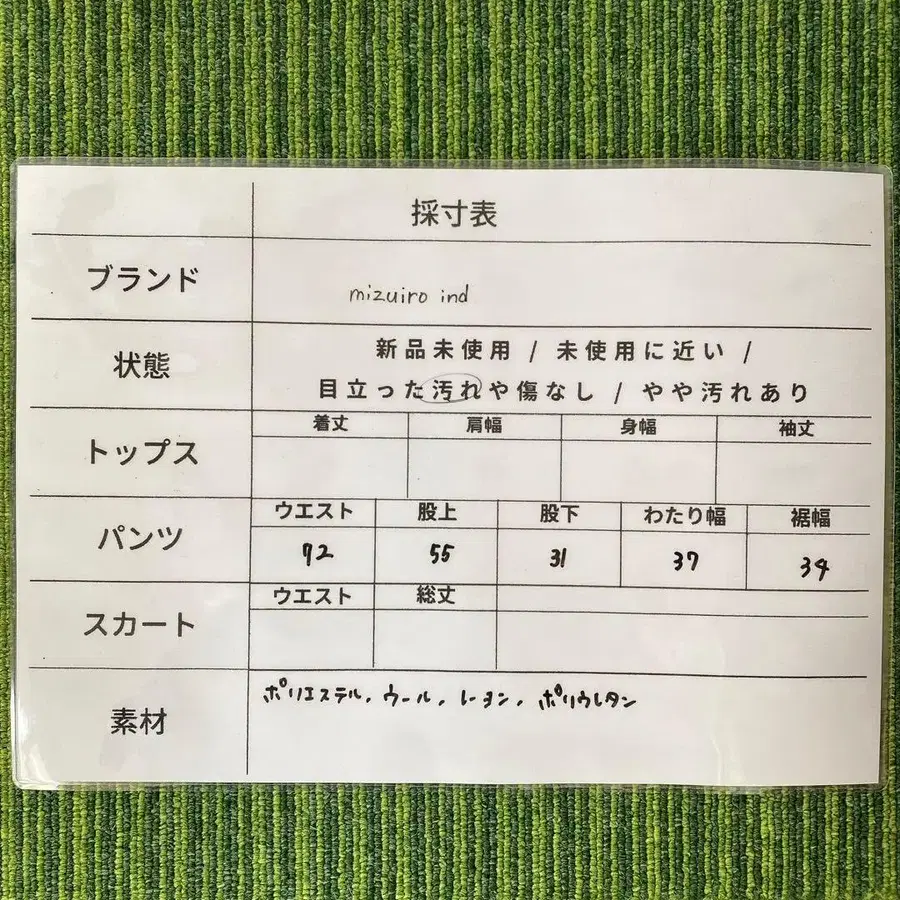 採寸表
ブランド
mizuiro ind
状態
新品未使用 / 未使用に近い /
目立った汚れや傷なし / やや汚れあり
トップス
着丈 肩幅 身幅 袖丈
パンツ
ウエスト 股上 股下 わたり幅 裾幅
72 55 31 37 34
スカート
ウエスト 総丈
素材
ポリエステル、ウール、レーヨン、ポリウレタン